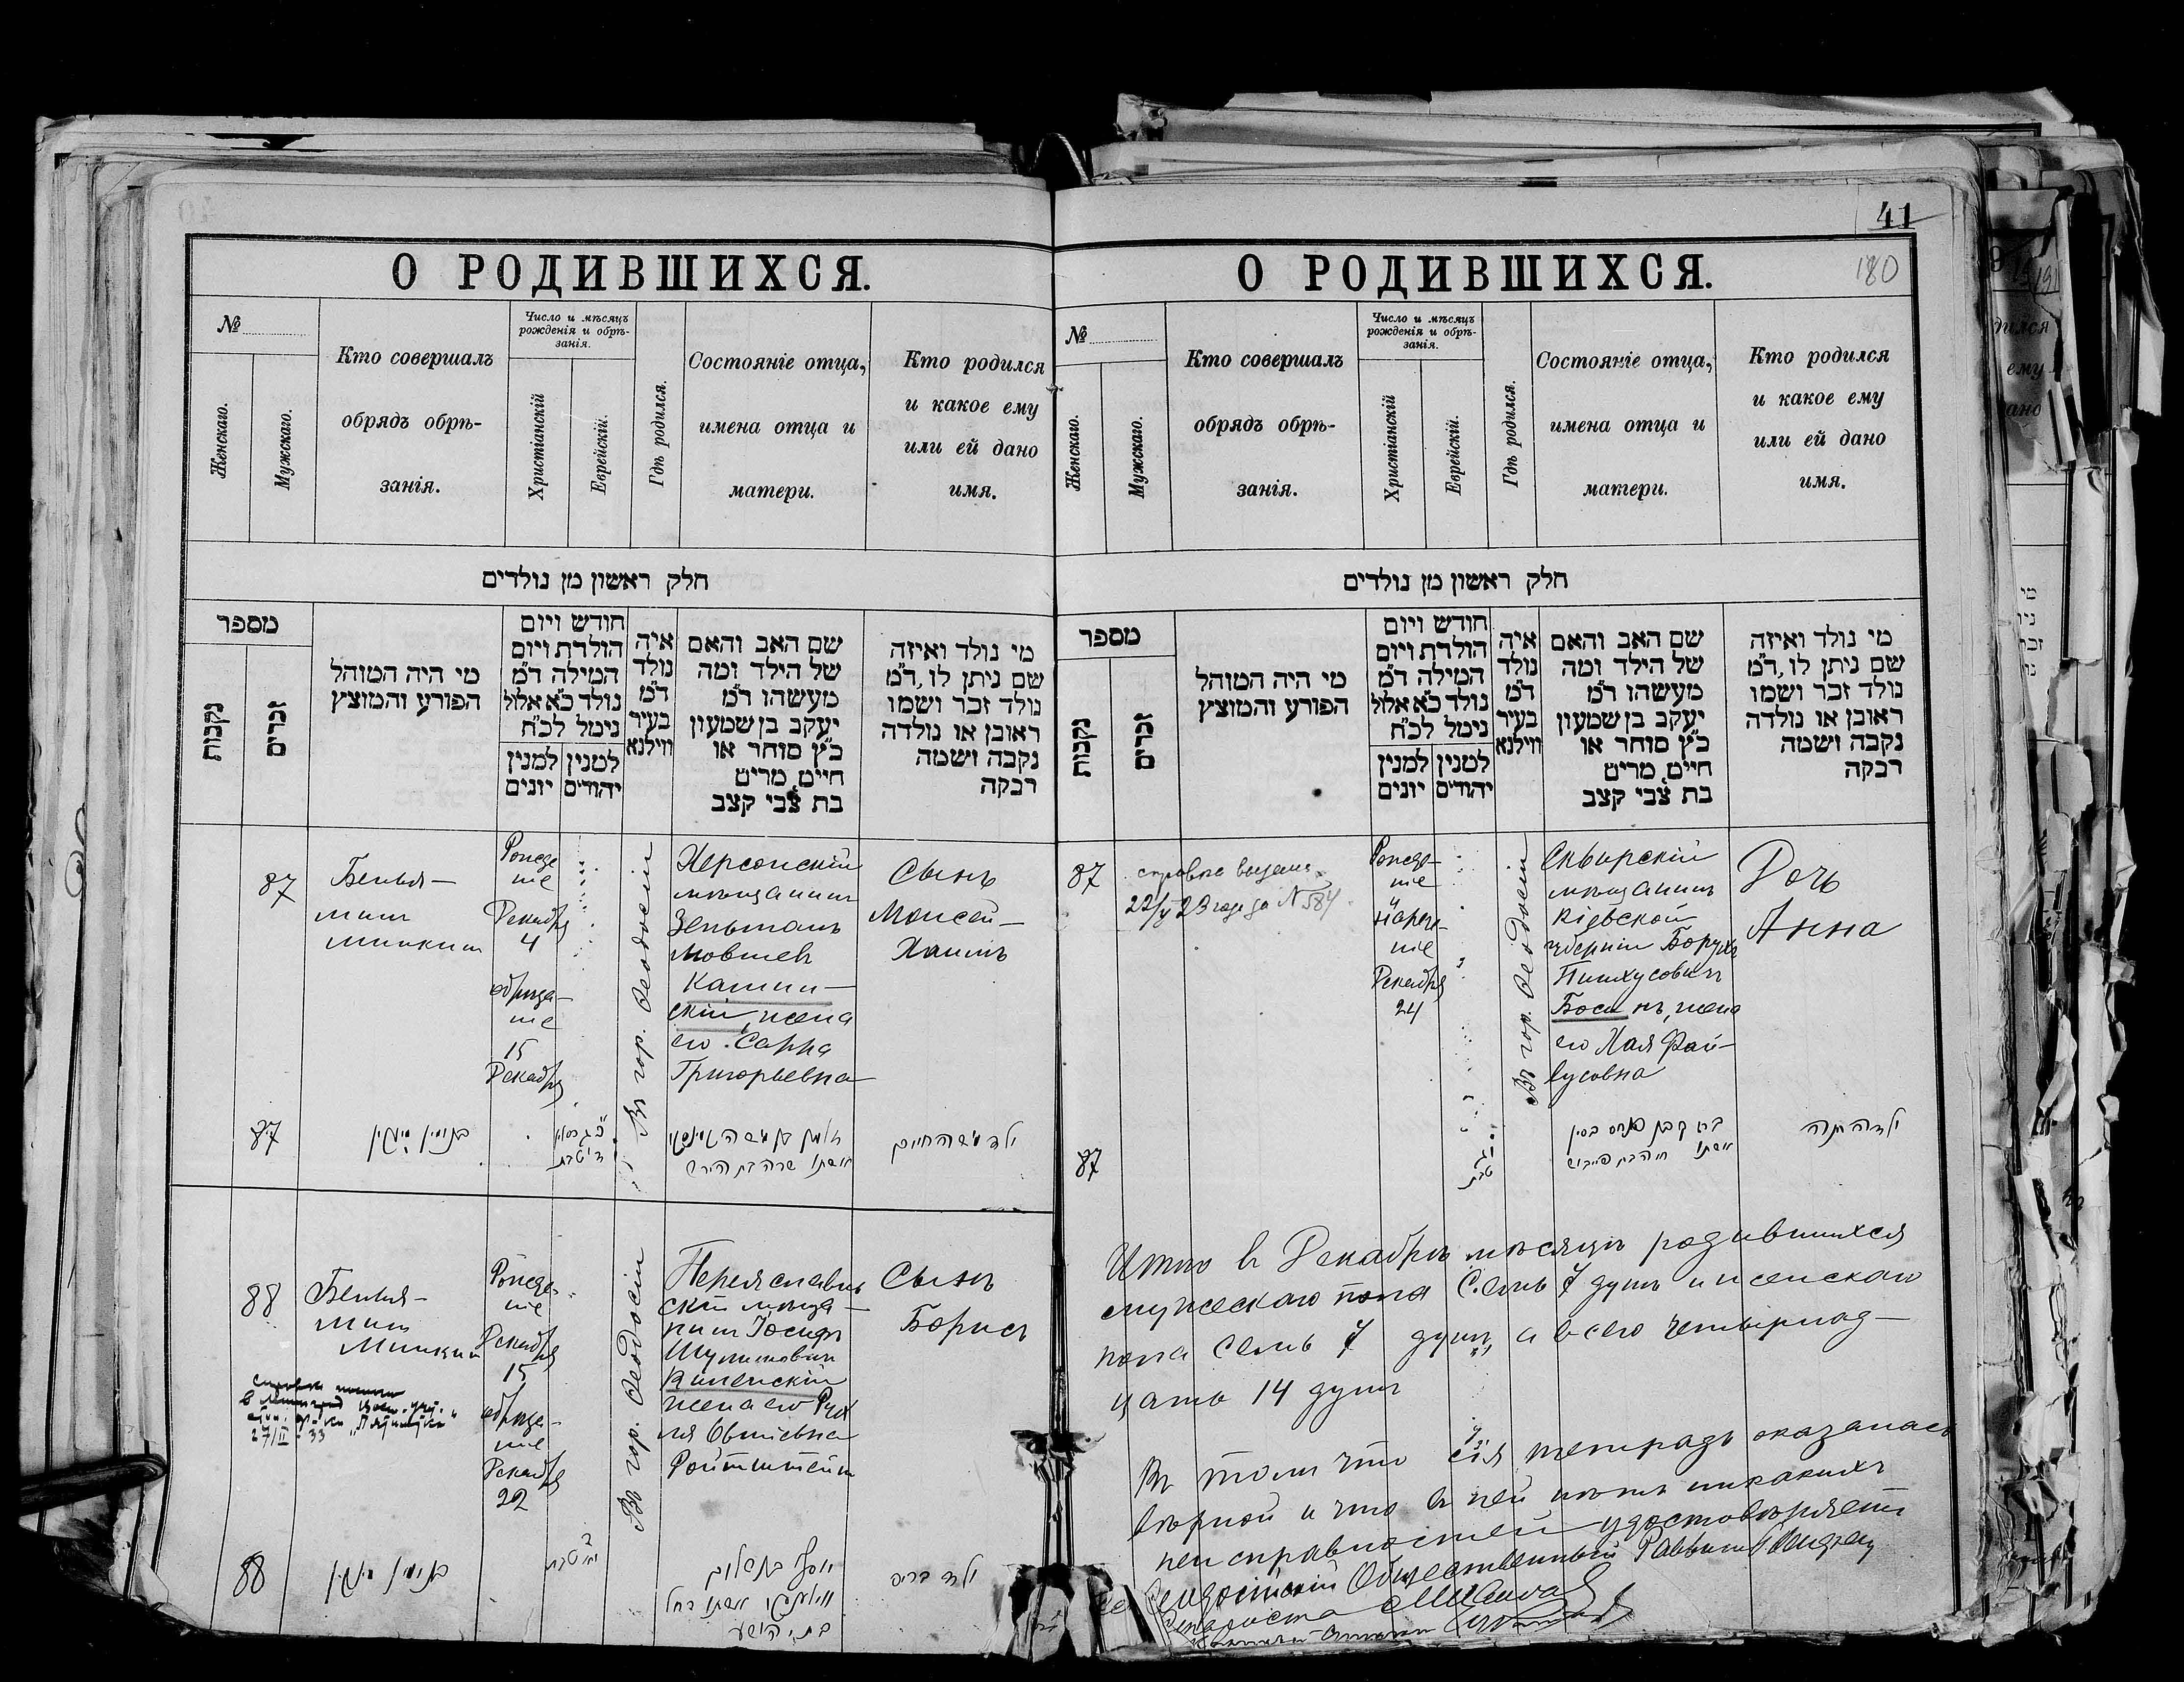 41
180
О РОДИВШИХСЯ.
№
Женскаго.
Мужскаго.
Кто совершалъ
обрядъ обрѣ-
занія.
Число и мѣсяцъ
рожденія и обрѣ-
занія.
Христіанскій
Еврейскій.
Гдѣ родился.
Состояніе отца,
имена отца и
матери.
Кто родился
и какое ему
или ей дано
имя.
חלק ראשון מן נולדים
מספר
נקבות
זכרים
מי היה המוהל
הפורע והמוצץ
חודש ויום
הולדת ויום
המילה ד״מ
נולד כ״א אלול
נימל לכ״ח
למנין
יהודים
למנין
יונים
איה
נולד
ד״מ
בעיר
ווילנא
שם האב והאם
של הילד ומה
מעשהו ד״מ
יעקב בן שמעון
כ״ץ סוחר או
חיים, מרים
בת צבי קצב
מי נולד ואיזה
שם ניתן לו, ד״מ
נולד זכר ושמו
ראובן או נולדה
נקבה ושמה
רבקה
87
Бенья-
мин
Минкин
Рожде
ніе
Декабря
4
обрѣза-
ніе
15
Декабря
Въ гор. Ѳеодосіи
Херсонскій
мѣщанинъ
Зельманъ
Мовшев
Камин-
скій, жена
его Сарра
Григорьевна
Сынъ
Моисей-
Хаимъ
87
בנימין מינקין
ילד משה חיים
88
Бенья-
мин
Минкин
Рожде-
ніе
Декабря
15
обрѣза-
ніе
Декабря
22
Въ гор. Ѳеодосіи
Переяслав
скій мѣща-
нин Іосифъ
Шулимович
Виленскій
жена его Рух
ля Овшіевна
Ройтштейн
Сынъ
Борисъ
27/II 33
88
בנימין מינקין
יוסף בן שלום
ווילענסקי אשתו רחל
בת יהושע
ילד בריס
О РОДИВШИХСЯ.
№
Женскаго.
Мужскаго.
Кто совершалъ
обрядъ обрѣ-
занія.
Число и мѣсяцъ
рожденія и обрѣ-
занія.
Христіанскій
Еврейскій.
Гдѣ родился.
Состояніе отца,
имена отца и
матери.
Кто родился
и какое ему
или ей дано
имя.
חלק ראשון מן נולדים
מספר
נקבות
זכרים
מי היה המוהל
הפורע והמוצץ
חודש ויום
הולדת ויום
המילה ד״מ
נולד כ״א אלול
נימל לכ״ח
למנין
יהודים
למנין
יונים
איה
נולד
ד״מ
בעיר
ווילנא
שם האב והאם
של הילד ומה
מעשהו ד״מ
יעקב בן שמעון
כ״ץ סוחר או
חיים, מרים
בת צבי קצב
מי נולד ואיזה
שם ניתן לו, ד״מ
נולד זכר ושמו
ראובן או נולדה
נקבה ושמה
רבקה
87
справка выдана
22/V 23 года за N 584
Рожде-
ніе
и
нарече-
ніе
Декабря
24
Въ гор. Ѳеодосіи
Сквирскій
мѣщанинъ
Кіевской
губерніи Борухъ
Пинхусович
Босинъ, жена
его Хая Фай-
вусовна
Дочь
Анна
87
ילדה חנה
Итого в Декабрѣ мѣсяцѣ родившихся
мужескаго пола Семь 7 душъ и женскаго
пола семь 7 душъ, а всего четырнад-
цать 14 душъ
Въ томъ что сія тетрадь оказалась
вѣрной и что в ней нѣтъ никакихъ
неисправностей удостовѣряетъ
Ѳеодосійскій Общественный Раввинъ
Староста